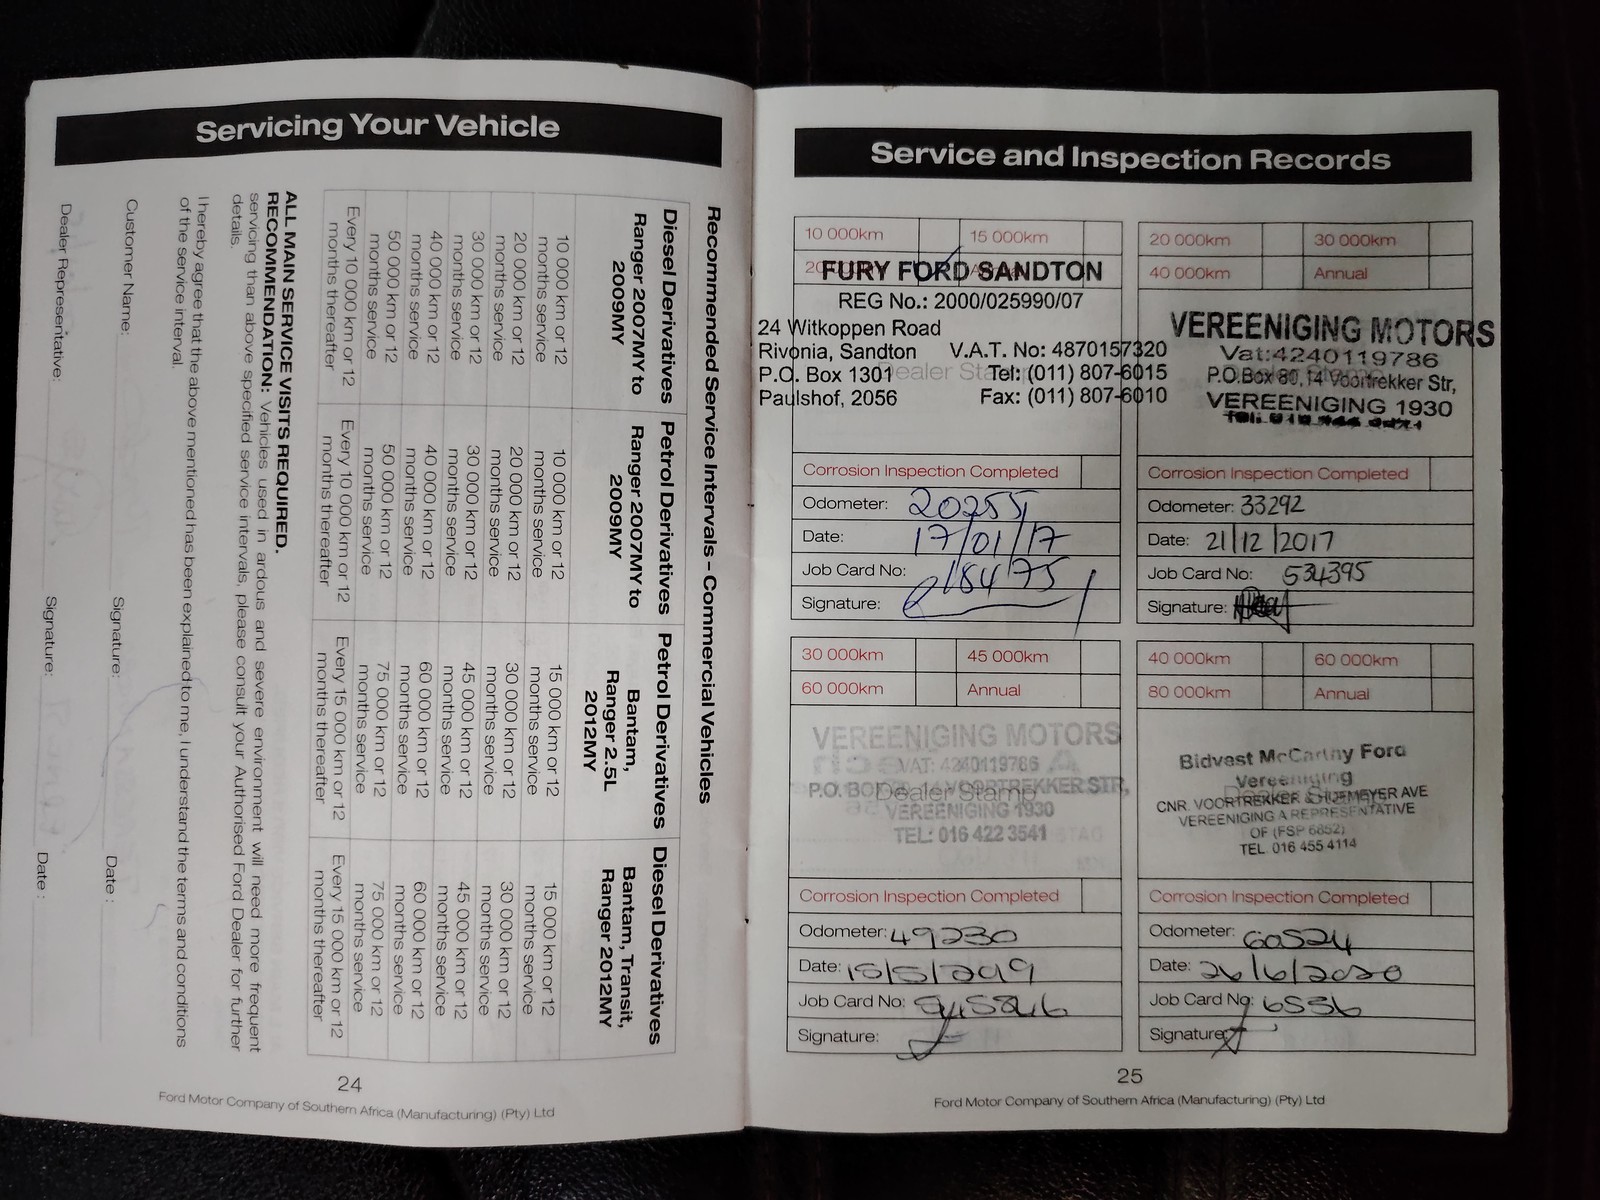 Servicing Your Vehicle
Recommended Service Intervals – Commercial Vehicles
Diesel Derivatives Ranger 2007MY to 2009MY
Petrol Derivatives Ranger 2007MY to 2009MY
Petrol Derivatives Bantam, Ranger 2.5L 2012MY
Diesel Derivatives Bantam, Transit, Ranger 2012MY
10 000 km or 12 months service
10 000 km or 12 months service
15 000 km or 12 months service
15 000 km or 12 months service
20 000 km or 12 months service
20 000 km or 12 months service
30 000 km or 12 months service
30 000 km or 12 months service
30 000 km or 12 months service
30 000 km or 12 months service
45 000 km or 12 months service
45 000 km or 12 months service
40 000 km or 12 months service
40 000 km or 12 months service
60 000 km or 12 months service
60 000 km or 12 months service
50 000 km or 12 months service
50 000 km or 12 months service
75 000 km or 12 months service
75 000 km or 12 months service
Every 10 000 km or 12 months thereafter
Every 10 000 km or 12 months thereafter
Every 15 000 km or 12 months thereafter
Every 15 000 km or 12 months thereafter
ALL MAIN SERVICE VISITS REQUIRED.
RECOMMENDATION: Vehicles used in ardous and severe environment will need more frequent
servicing than above specified service intervals, please consult your Authorised Ford Dealer for further
details.
I hereby agree that the above mentioned has been explained to me, I understand the terms and conditions
of the service interval.
Customer Name: Signature: Date :
Dealer Representative: Signature: Date :
24
Ford Motor Company of Southern Africa (Manufacturing) (Pty) Ltd
Service and Inspection Records
10 000km 15 000km
FURY FORD SANDTON
REG No.: 2000/025990/07
24 Witkoppen Road
Rivonia, Sandton V.A.T. No: 4870157320
P.O. Box 1301 Tel: (011) 807-6015
Paulshof, 2056 Fax: (011) 807-6010
Dealer Stamp
Corrosion Inspection Completed
Odometer: 20255
Date: 17/01/17
Job Card No: 18475
Signature:
20 000km 30 000km
40 000km Annual
VEREENIGING MOTORS
Vat:4240119786
P.O.Box 80,14 Voortrekker Str,
VEREENIGING 1930
Corrosion Inspection Completed
Odometer: 33292
Date: 21/12/2017
Job Card No: 534395
Signature:
30 000km 45 000km
60 000km Annual
VEREENIGING MOTORS
VAT: 4240119786
P.O. BO VOORTREKKER STR,
Dealer Stamp
VEREENIGING 1930
TEL: 016 422 3541
Corrosion Inspection Completed
Odometer: 49230
Date: 15/5/2019
Job Card No:
Signature:
40 000km 60 000km
80 000km Annual
Bidvest McCarthy Ford
Vereeniging
CNR. VOORTREKKER & AVE
VEREENIGING A REPRESENTATIVE
OF (FSP 6852)
TEL. 016 455 4114
Corrosion Inspection Completed
Odometer: 60524
Date: 26/6/2020
Job Card No: 6536
Signature:
25
Ford Motor Company of Southern Africa (Manufacturing) (Pty) Ltd